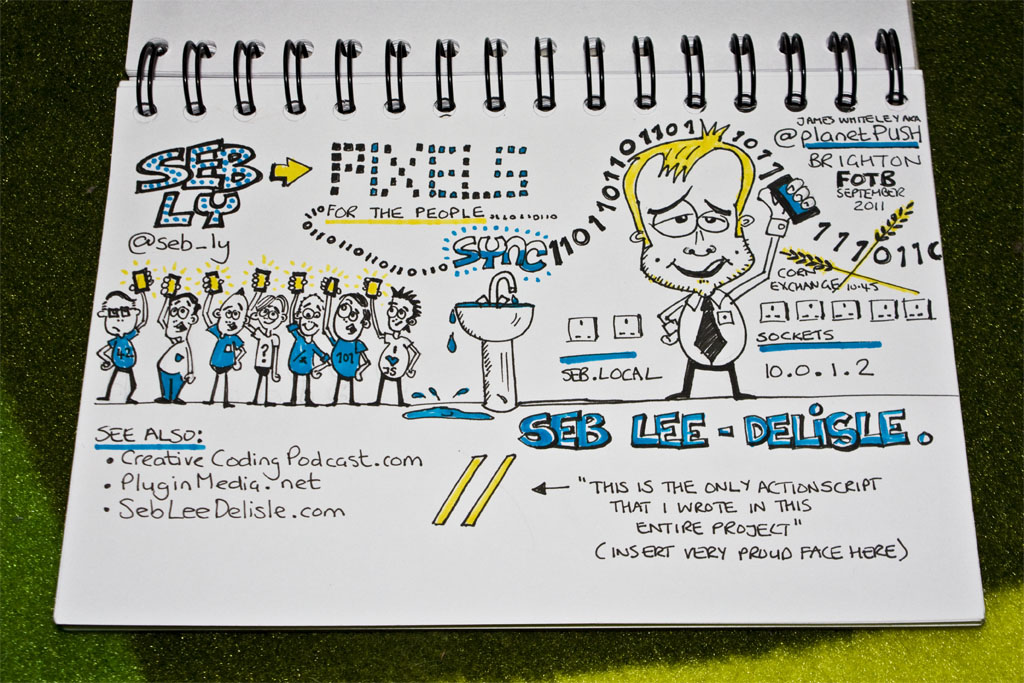 SEB
LY
@seb_ly
PIXELS
FOR THE PEOPLE
SYNC
110110110110110101101
10117
JAMES WHITELEY AKA
@planetPUSH
BRIGHTON
FOTB
SEPTEMBER
2011
CORN
EXCHANGE 10:45
SOCKETS
10.0.1.2
SEB.LOCAL
42
?
101
I
JS
SEB LEE-DELISLE.
SEE ALSO:
• CreativeCodingPodcast.com
• PluginMedia.net
• SebLeeDelisle.com
//
← "THIS IS THE ONLY ACTIONSCRIPT
THAT I WROTE IN THIS
ENTIRE PROJECT"
(INSERT VERY PROUD FACE HERE)